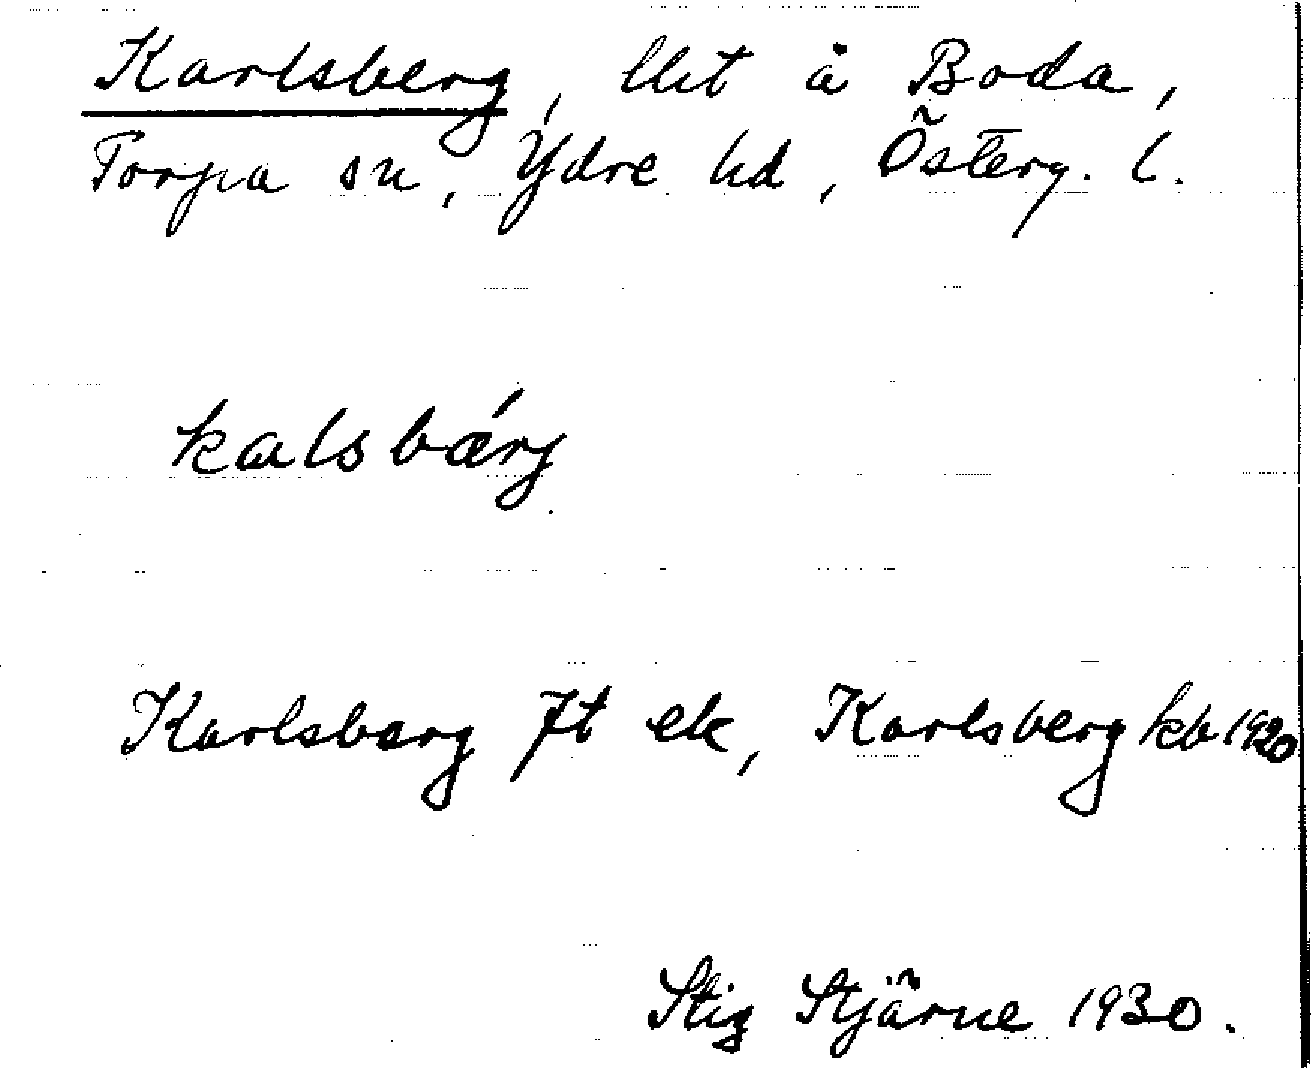 Karlsberg, lht å Boda,
Torpa sn, Ydre hd, Österg. l.
kalsbærj
Karlsberg Jt ek, Karlsberg kb 1920
Stig Stjärne 1930.